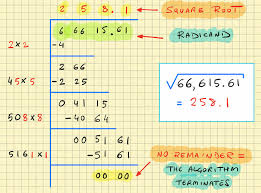 2 5 8 . 1 SQUARE ROOT
6 66 15.61 RADICAND
2 x 2 -4
2 66
45 x 5 -2 25
√66,615.61
= 258.1
0 41 15
508 x 8 - 40 64
00 51 61
5161 x 1 -51 61
NO REMAINDER =
00 00 THE ALGORITHM
TERMINATES